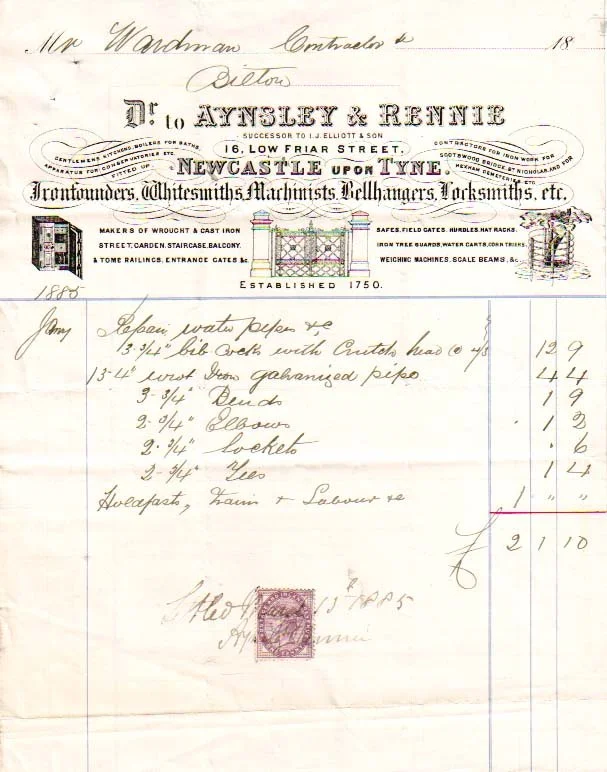 Mr Wardman Contractor &
18
Bilton
Dr. to AYNSLEY & RENNIE
SUCCESSOR TO I. J. ELLIOTT & SON
16, LOW FRIAR STREET,
NEWCASTLE UPON TYNE.
GENTLEMENS KITCHENS, BOILERS FOR BATHS,
APPARATUS FOR CONSERVATORIES ETC.
FITTED UP
CONTRACTORS FOR IRON WORK FOR
SCOTSWOOD BRIDGE, ST NICHOLAS, AND FOR
HEXHAM CEMETERIES ETC
Ironfounders, Whitesmiths, Machinists, Bellhangers, Locksmiths, etc.
MAKERS OF WROUGHT & CAST IRON
STREET, GARDEN, STAIRCASE, BALCONY,
& TOMB RAILINGS, ENTRANCE GATES &c.
SAFES, FIELD GATES, HURDLES, HAT RACKS,
IRON TREE GUARDS, WATER CARTS, CORN TRIERS
WEIGHING MACHINES, SCALE BEAMS, &c.
ESTABLISHED 1750.
1885
Jany Repair water pipes &c
3 3/4" bib Cocks with Crutch head @ 4/3 12 9
13-4" wrot Iron galvanized pipe 4 4
3-3/4" Bends 1 9
2-3/4" Elbows 1 2
2-3/4" Sockets 6
2-3/4" Tees 1 4
Holdfasts, & Labour &c 1 " "
£ 2 1 10
Settled 13th 1885
Aynsley & Rennie